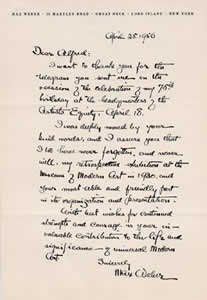 MAX WEBER · 10 HARTLEY ROAD · GREAT NECK · LONG ISLAND · NEW YORK
April 25, 1956
Dear Alfred:
I want to thank you for the
telegram you sent me on the
occasion of the celebration of my 75th
birthday at the headquarters of the
Artists Equity, April 18.
I was deeply moved by your
kind words, and I assure you that
I'll have never forgotten, and never
will, my retrospective exhibition at the
Museum of Modern Art in 1930, and
your most able and friendly part
in its organization and presentation.
With best wishes for continued
strength and courage in your in-
valuable contribution to the life and
significance of universal Modern
Art
Sincerely
Max Weber